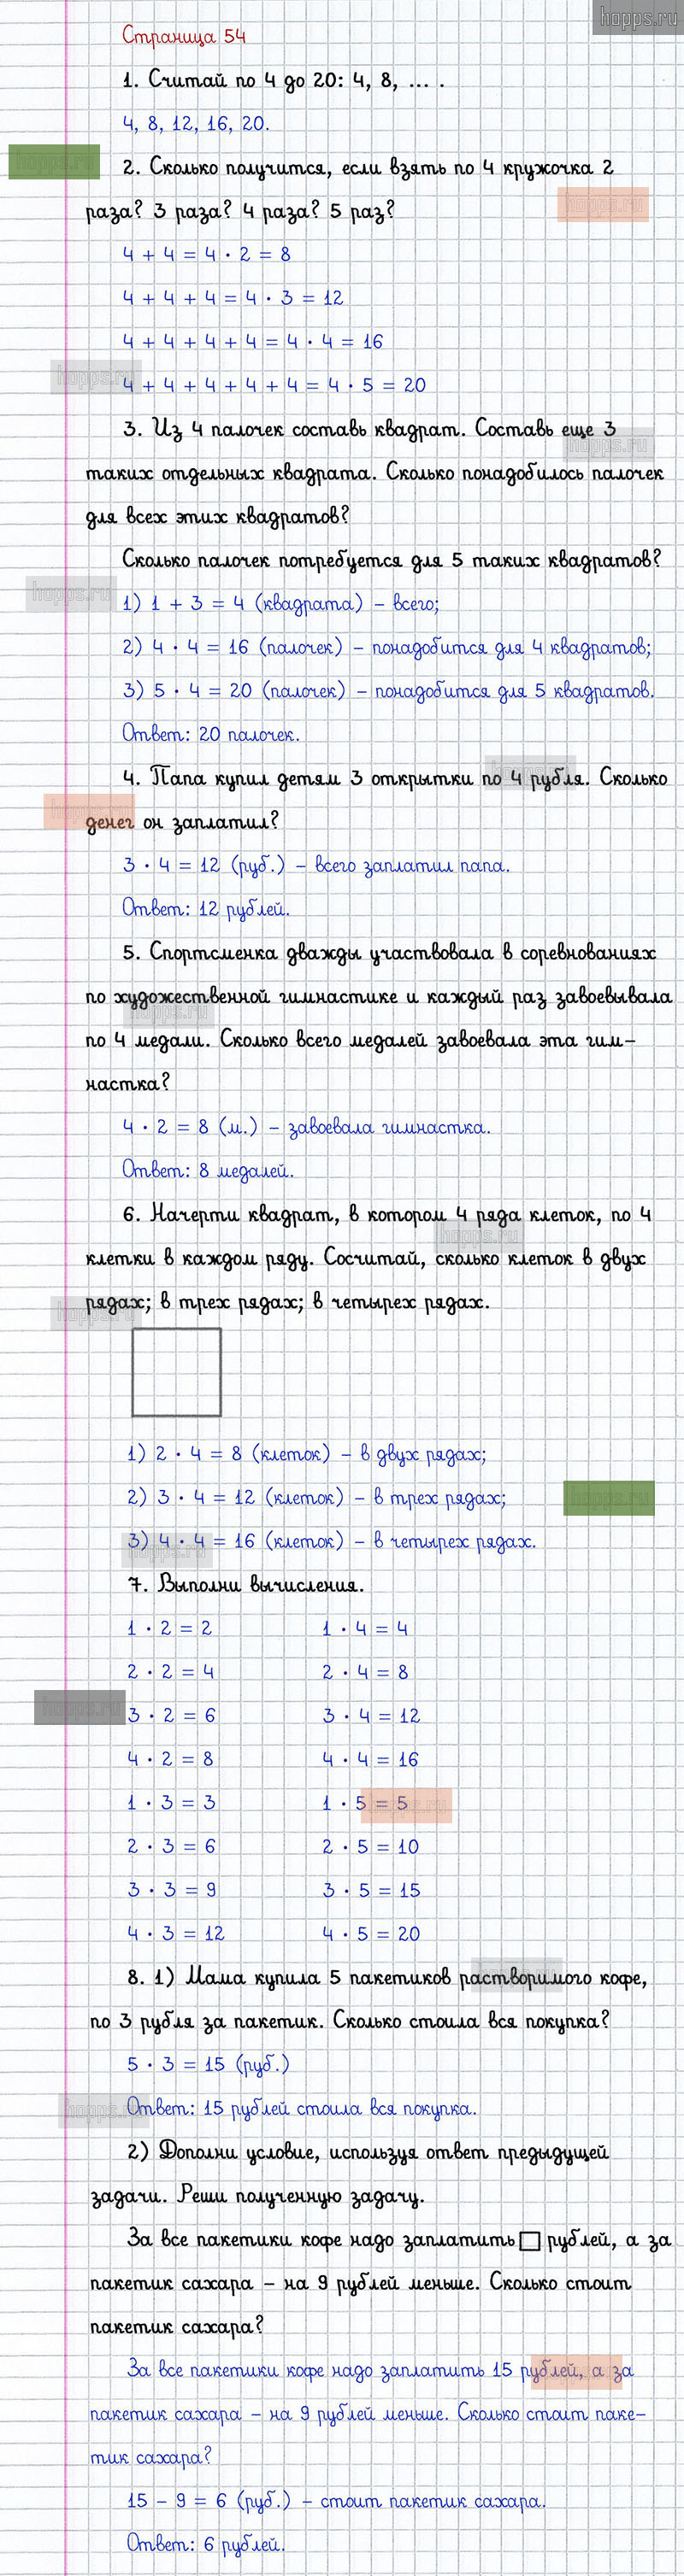 hopps.ru
Страница 54
1. Считай по 4 до 20: 4, 8, ... .
4, 8, 12, 16, 20.
hopps.ru
2. Сколько получится, если взять по 4 кружочка 2
раза? 3 раза? 4 раза? 5 раз?
hopps.ru
4 + 4 = 4 · 2 = 8
4 + 4 + 4 = 4 · 3 = 12
4 + 4 + 4 + 4 = 4 · 4 = 16
hopps.ru
4 + 4 + 4 + 4 + 4 = 4 · 5 = 20
3. Из 4 палочек составь квадрат. Составь еще 3
hopps.ru
таких отдельных квадрата. Сколько понадобилось палочек
для всех этих квадратов?
Сколько палочек потребуется для 5 таких квадратов?
hopps.ru
1) 1 + 3 = 4 (квадрата) – всего;
2) 4 · 4 = 16 (палочек) – понадобится для 4 квадратов;
3) 5 · 4 = 20 (палочек) – понадобится для 5 квадратов.
Ответ: 20 палочек.
hopps.ru
4. Папа купил детям 3 открытки по 4 рубля. Сколько
hopps.ru
денег он заплатил?
3 · 4 = 12 (руб.) – всего заплатил папа.
Ответ: 12 рублей.
5. Спортсменка дважды участвовала в соревнованиях
по художественной гимнастике и каждый раз завоевывала
hopps.ru
по 4 медали. Сколько всего медалей завоевала эта гим–
настка?
4 · 2 = 8 (м.) – завоевала гимнастка.
Ответ: 8 медалей.
6. Начерти квадрат, в котором 4 ряда клеток, по 4
hopps.ru
клетки в каждом ряду. Сосчитай, сколько клеток в двух
рядах; в трех рядах; в четырех рядах.
hopps.ru
1) 2 · 4 = 8 (клеток) – в двух рядах;
2) 3 · 4 = 12 (клеток) – в трех рядах;
hopps.ru
3) 4 · 4 = 16 (клеток) – в четырех рядах.
hopps.ru
7. Выполни вычисления.
1 · 2 = 2 1 · 4 = 4
2 · 2 = 4 2 · 4 = 8
hopps.ru
3 · 2 = 6 3 · 4 = 12
4 · 2 = 8 4 · 4 = 16
1 · 3 = 3 1 · 5 = 5
hopps.ru
2 · 3 = 6 2 · 5 = 10
3 · 3 = 9 3 · 5 = 15
4 · 3 = 12 4 · 5 = 20
8. 1) Мама купила 5 пакетиков растворимого кофе,
hopps.ru
по 3 рубля за пакетик. Сколько стоила вся покупка?
5 · 3 = 15 (руб.)
hopps.ru
Ответ: 15 рублей стоила вся покупка.
2) Дополни условие, используя ответ предыдущей
задачи. Реши полученную задачу.
За все пакетики кофе надо заплатить □ рублей, а за
пакетик сахара – на 9 рублей меньше. Сколько стоит
пакетик сахара?
За все пакетики кофе надо заплатить 15 рублей, а за
пакетик сахара – на 9 рублей меньше. Сколько стоит паке–
тик сахара?
15 – 9 = 6 (руб.) – стоит пакетик сахара.
Ответ: 6 рублей.